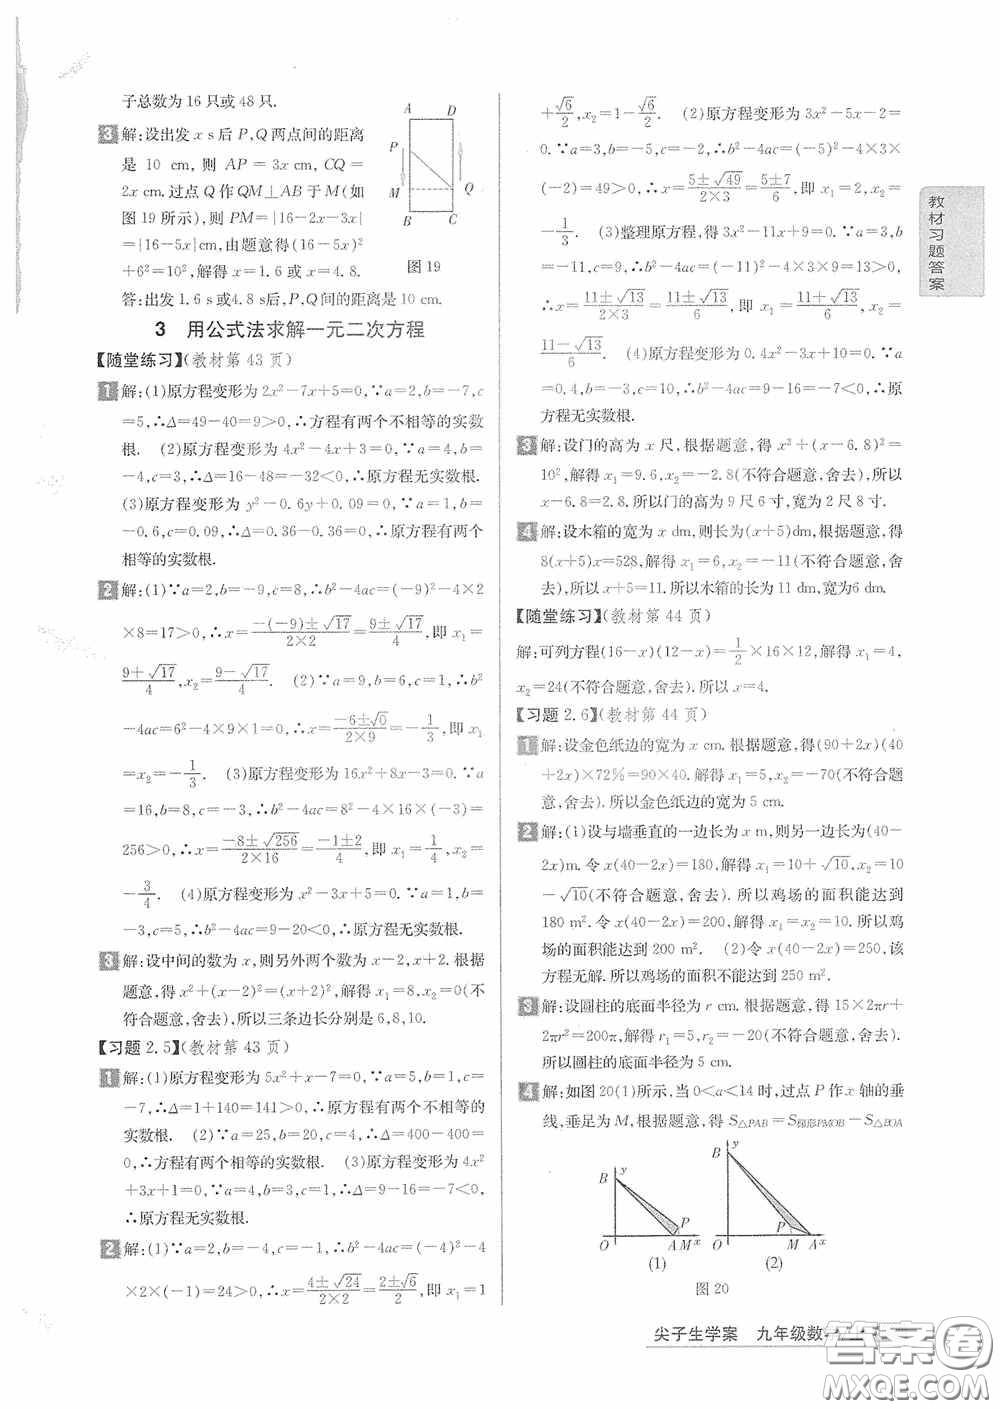 子总数为16只或48只.
3 解:设出发 x s后 P,Q 两点间的距离
是 10 cm, 则 AP = 3x cm, CQ =
2x cm. 过点 Q 作 QM⊥AB 于 M(如
图 19 所示), 则 PM=|16-2x-3x|
=|16-5x|cm, 由题意得(16-5x)²
+6²=10², 解得 x=1.6 或 x=4.8.
答:出发 1.6 s或4.8 s后,P,Q间的距离是10 cm.
A D
P
M Q
B C
图 19
3 用公式法求解一元二次方程
【随堂练习】(教材第 43 页)
1 解:(1)原方程变形为 2x²-7x+5=0,∵a=2,b=-7,c
=5,∴Δ=49-40=9>0,∴方程有两个不相等的实数
根. (2)原方程变形为 4x²-4x+3=0,∵a=4,b=
-4,c=3,∴Δ=16-48=-32<0,∴原方程无实数根.
(3)原方程变形为 y²-0.6y+0.09=0,∵a=1,b=
-0.6,c=0.09,∴Δ=0.36-0.36=0,∴原方程有两个
相等的实数根.
2 解:(1)∵a=2,b=-9,c=8,∴b²-4ac=(-9)²-4×2
×8=17>0,∴x=\frac{-(-9)±√17}{2×2}=\frac{9±√17}{4},即 x₁=
\frac{9+√17}{4},x₂=\frac{9-√17}{4}. (2)∵a=9,b=6,c=1,∴b²
-4ac=6²-4×9×1=0,∴x=\frac{-6±√0}{2×9}=-\frac{1}{3},即 x₁
=x₂=-\frac{1}{3}. (3)原方程变形为 16x²+8x-3=0.∵a
=16,b=8,c=-3,∴b²-4ac=8²-4×16×(-3)=
256>0,∴x=\frac{-8±√256}{2×16}=\frac{-1±2}{4},即 x₁=\frac{1}{4},x₂=
-\frac{3}{4}. (4)原方程变形为 x²-3x+5=0.∵a=1,b=
-3,c=5,∴b²-4ac=9-20<0,∴原方程无实数根.
3 解:设中间的数为 x,则另外两个数为 x-2,x+2. 根据
题意,得 x²+(x-2)²=(x+2)²,解得 x₁=8,x₂=0(不
符合题意,舍去),所以三条边长分别是 6,8,10.
【习题 2.5】(教材第 43 页)
1 解:(1)原方程变形为 5x²+x-7=0,∵a=5,b=1,c=
-7,∴Δ=1+140=141>0,∴原方程有两个不相等的
实数根. (2)∵a=25,b=20,c=4,∴Δ=400-400=
0,∴方程有两个相等的实数根. (3)原方程变形为 4x²
+3x+1=0,∵a=4,b=3,c=1,∴Δ=9-16=-7<0,
∴原方程无实数根.
2 解:(1)∵a=2,b=-4,c=-1,∴b²-4ac=(-4)²-4
×2×(-1)=24>0,∴x=\frac{4±√24}{2×2}=\frac{2±√6}{2},即 x₁=1
+\frac{√6}{2},x₂=1-\frac{√6}{2}. (2)原方程变形为 3x²-5x-2=
0.∵a=3,b=-5,c=-2,∴b²-4ac=(-5)²-4×3×
(-2)=49>0,∴x=\frac{5±√49}{2×3}=\frac{5±7}{6},即 x₁=2,x₂=
-\frac{1}{3}. (3)整理原方程,得 3x²-11x+9=0.∵a=3,b
=-11,c=9,∴b²-4ac=(-11)²-4×3×9=13>0,∴
x=\frac{11±√13}{2×3}=\frac{11±√13}{6},即 x₁=\frac{11+√13}{6},x₂=
\frac{11-√13}{6}. (4)原方程变形为 0.4x²-3x+10=0.∵a
=0.4,b=-3,c=10,∴b²-4ac=9-16=-7<0,∴原
方程无实数根.
3 解:设门的高为 x 尺,根据题意,得 x²+(x-6.8)²=
10²,解得 x₁=9.6,x₂=-2.8(不符合题意,舍去),所以
x-6.8=2.8.所以门的高为 9 尺 6 寸,宽为 2 尺 8 寸.
4 解:设木箱的宽为 x dm,则长为(x+5)dm,根据题意,得
8(x+5)x=528,解得 x₁=6,x₂=-11(不符合题意,舍
去),所以 x+5=11. 所以木箱的长为 11 dm,宽为 6 dm.
【随堂练习】(教材第 44 页)
解:可列方程(16-x)(12-x)=\frac{1}{2}×16×12,解得 x₁=4,
x₂=24(不符合题意,舍去).所以 x=4.
【习题 2.6】(教材第 44 页)
1 解:设金色纸边的宽为 x cm. 根据题意,得(90+2x)(40
+2x)×72%=90×40. 解得 x₁=5,x₂=-70(不符合
题意,舍去).所以金色纸边的宽为 5 cm.
2 解:(1)设与墙垂直的一边长为 x m,则另一边长为(40-
2x)m. 令 x(40-2x)=180,解得 x₁=10+√10,x₂=10
-√10(不符合题意,舍去). 所以鸡场的面积能达到
180 m². 令 x(40-2x)=200,解得 x₁=x₂=10. 所以鸡
场的面积能达到 200 m². (2)令 x(40-2x)=250,该
方程无解.所以鸡场的面积不能达到 250 m².
3 解:设圆柱的底面半径为 r cm. 根据题意,得 15×2πr+
2πr²=200π,解得 r₁=5,r₂=-20(不符合题意,舍去).
所以圆柱的底面半径为 5 cm.
4 解:如图 20(1)所示,当 0<a<14 时,过点 P 作 x 轴的垂
线,垂足为 M,根据题意,得 S△PAB=S梯形PMOB-S△BOA
y B P O A M x
(1)
y B P O M A x
(2)
图 20
教材习题答案
尖子生学案 九年级数
答案卷
MXQE.COM